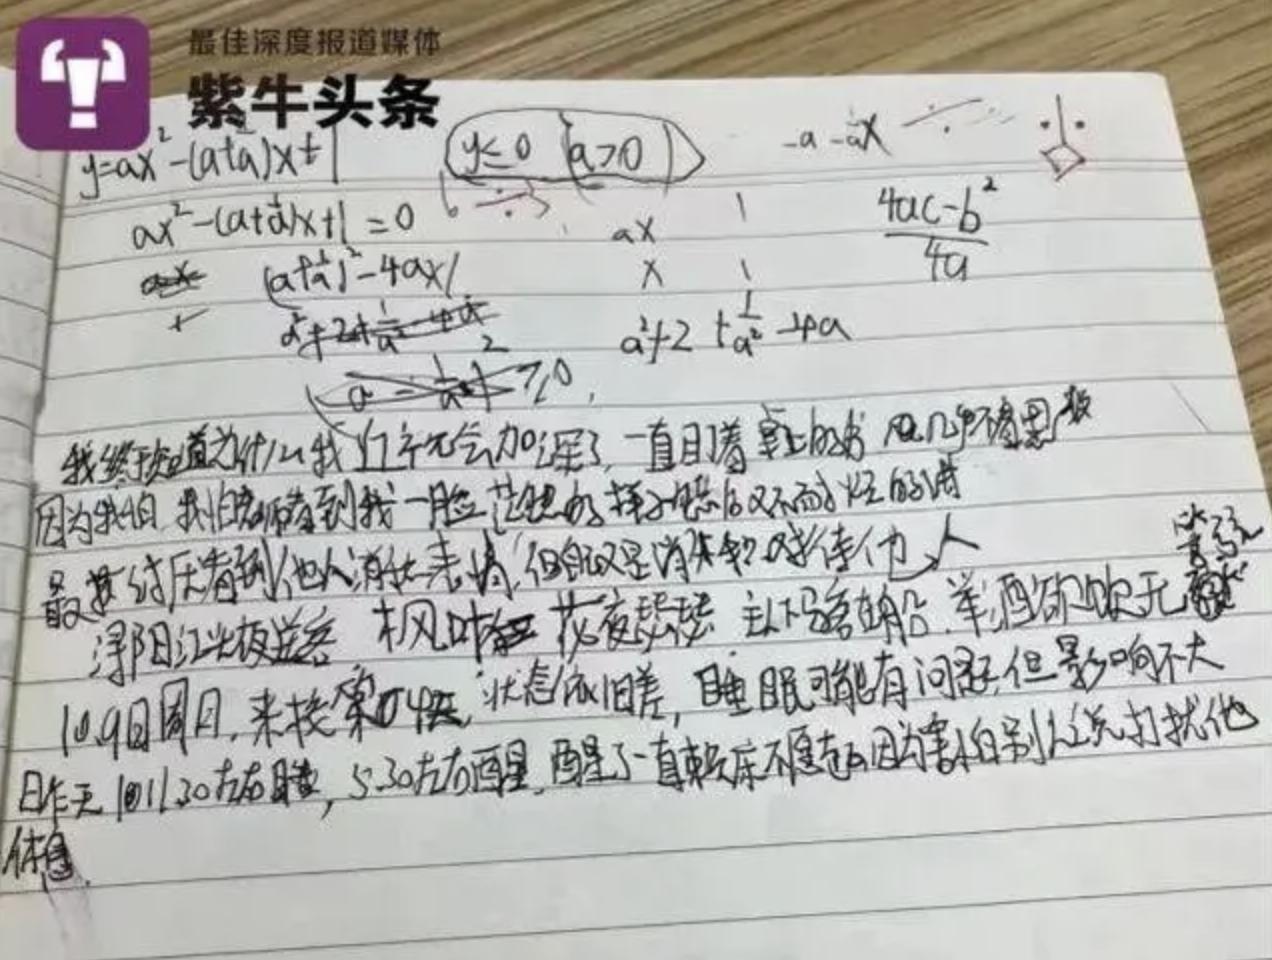 最佳深度报道媒体
紫牛头条
y=ax²-(a+1/a)x+1
y≤0 (a>0)
-a -1/a x
ax²-(a+1/a)x+1=0
ax 1
x 1
(4ac-b²)/4a
(a+1/a)²-4ax1
a²+2+1/a²-4a
≥0
我终于知道为什么我 会加深了,一直目着桌上的书
因为我怕 我怕老师看到我一脸茫然的样子
看到他人消极 但自己又是 对待他人
浔阳江头夜送客 枫叶 花夜瑟瑟 主人下马客在船,举酒欲饮无管弦
10.9日周日,来校第04天,状态依旧差,睡眠可能有问题,但影响不大
昨天1011.30左右睡,5.30左右醒,醒了一直赖床不愿起 因为害怕别人说打扰他
休息.